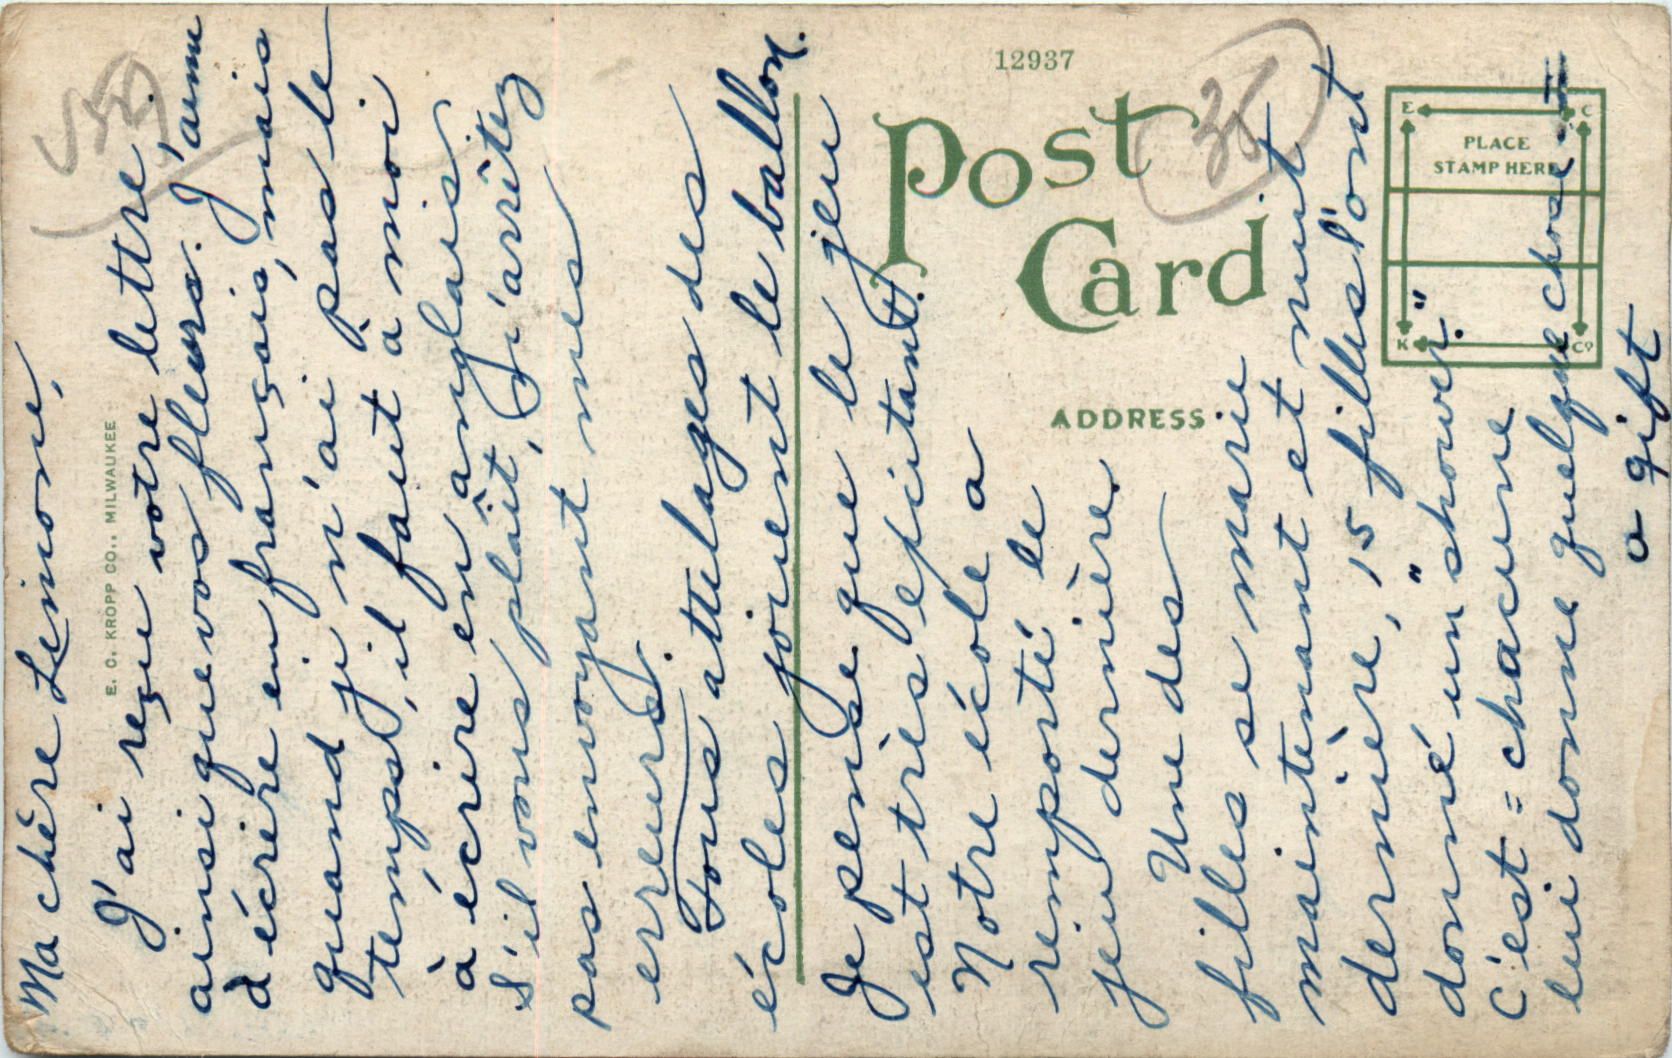 Ma chère Lenione,
J'ai reçu votre lettre,
ainsi que vos fleurs. J'aime
à écrire en français, mais
quand je n'ai pas le
temps, il faut à moi
à écrire en anglais.
S'il vous plaît, j'arrêtez
pas envoyant mes
erreurs.
Tous attelages des
écoles jouent le ballon.
Je pense que le jeu
est très epcitant.
Notre école a
remporté le
jeu dernière.
Une des
filles se marie
maintenant et nuit
dernière, 15 filles l'ont
donné un "shower."
C'est = chacune
lui donne quelque chose –
a gift
12937
Post
Card
ADDRESS
PLACE
STAMP HERE
E
C
K
Co
E. C. KROPP CO., MILWAUKEE
35